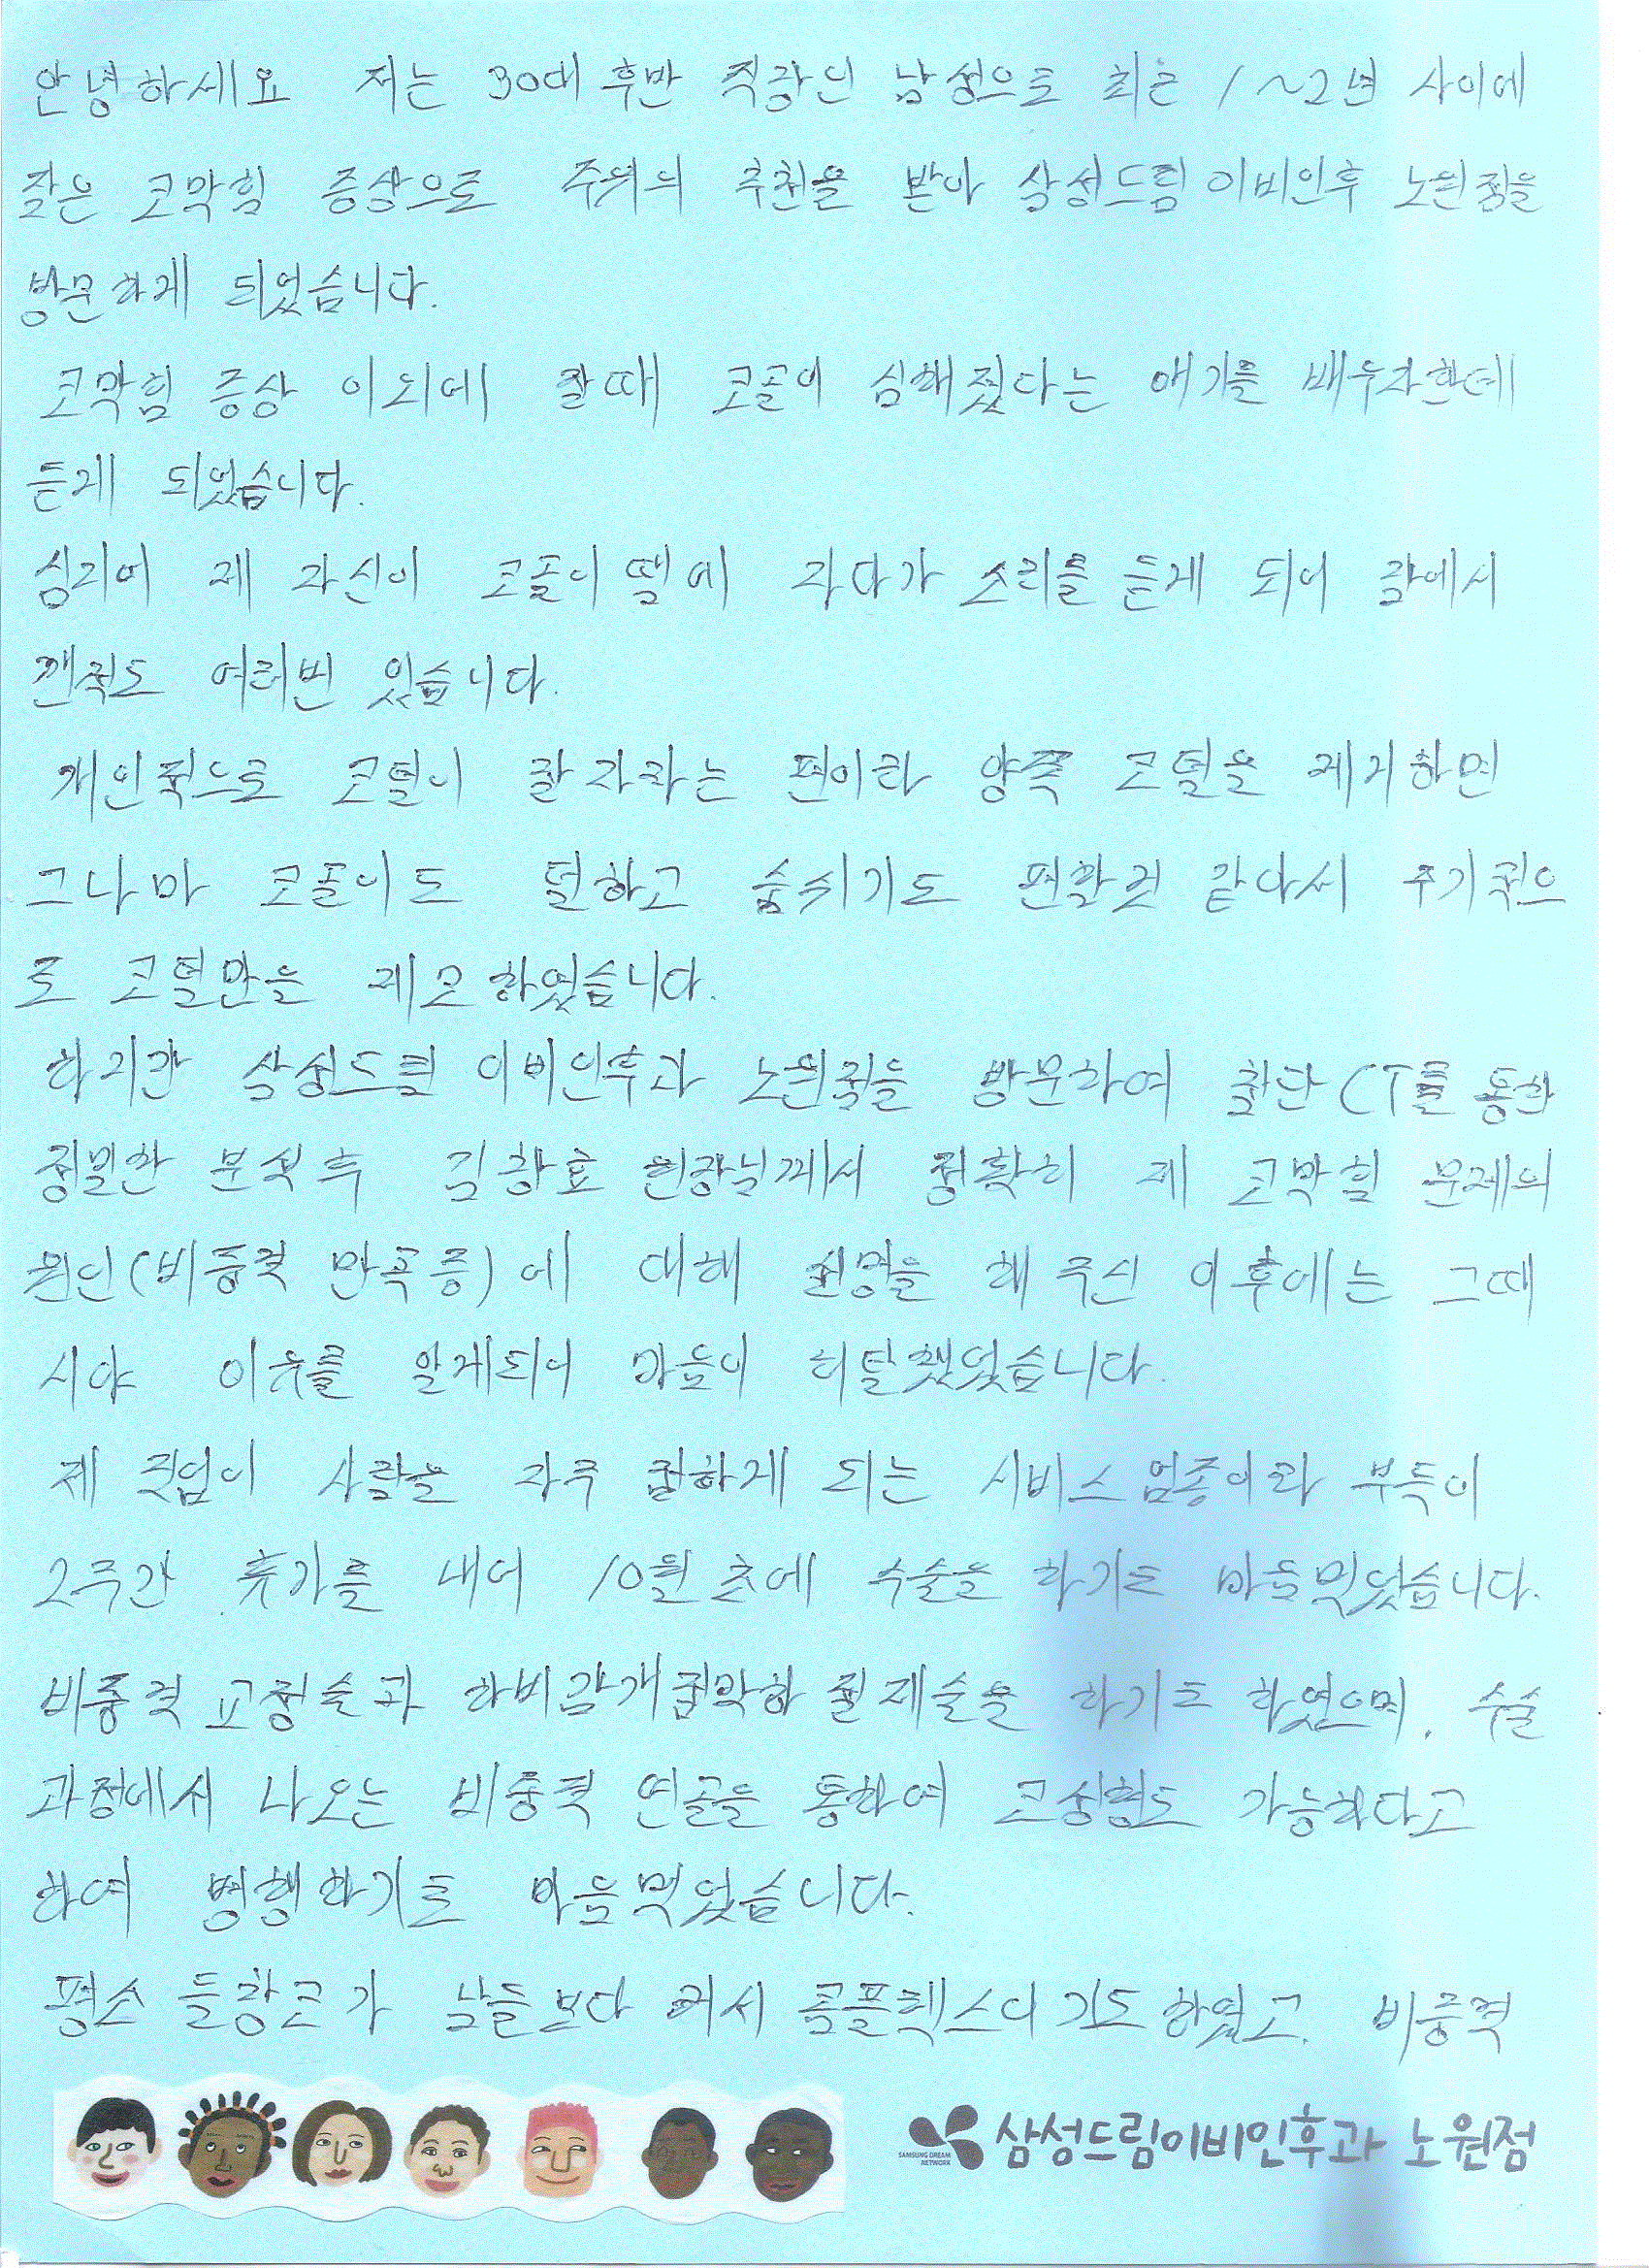 안녕하세요 저는 30대 후반 직장인 남성으로 최근 1~2년 사이에
잦은 코막힘 증상으로 주위의 추천을 받아 삼성드림이비인후 노원점을
방문하게 되었습니다.
코막힘 증상 이외에 잘때 코골이 심해졌다는 얘기를 배우자한테
듣게 되었습니다.
심지어 제 자신이 코골이 땜에 자다가 소리를 듣게 되어 잠에서
깬적도 여러번 있습니다.
개인적으로 코털이 잘 자라는 편이라 양쪽 코털을 제거하면
그나마 코골이도 덜하고 숨쉬기도 편할것 같아서 주기적으
로 코털만을 제모하였습니다.
하지만 삼성드림 이비인후과 노원점을 방문하여 첨단 CT를 통한
정밀한 분석후 김창효 원장님께서 정확히 제 코막힘 문제의
원인(비중격 만곡증)에 대해 설명을 해 주신 이후에는 그때
서야 이유를 알게되어 마음이 허탈했었습니다.
제 직업이 사람을 자주 접하게 되는 서비스 업종이라 부득이
2주간 휴가를 내어 10월 초에 수술을 하기로 마음먹었습니다.
비중격 교정술과 하비갑개점막하 절제술을 하기로 하였으며, 수술
과정에서 나오는 비중격 연골을 통하여 코성형도 가능하다고
하여 병행하기로 마음먹었습니다.
평소 들창코가 남들보다 커서 콤플렉스이기도 하였고, 비중격
SAMSUNG DREAM NETWORK 삼성드림이비인후과 노원점